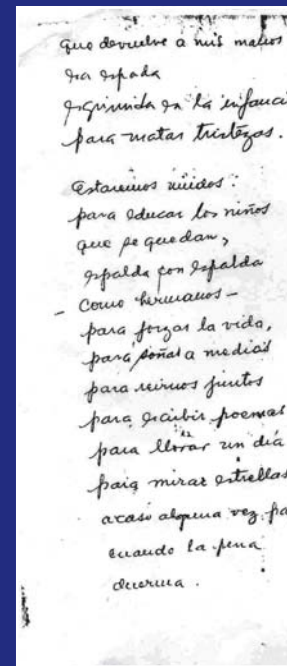 que devuelve a mis manos
esa espada
esgrimida en la infanci
para matar tristezas.
Estaremos unidos:
para educar los niños
que se quedan,
espalda con espalda
- como hermanos -
para forjar la vida,
para soñar a medias
para reirnos juntos
para escribir poemas
para llorar un día
para mirar estrellas
acaso alguna vez, pa
cuando la pena
duerma.